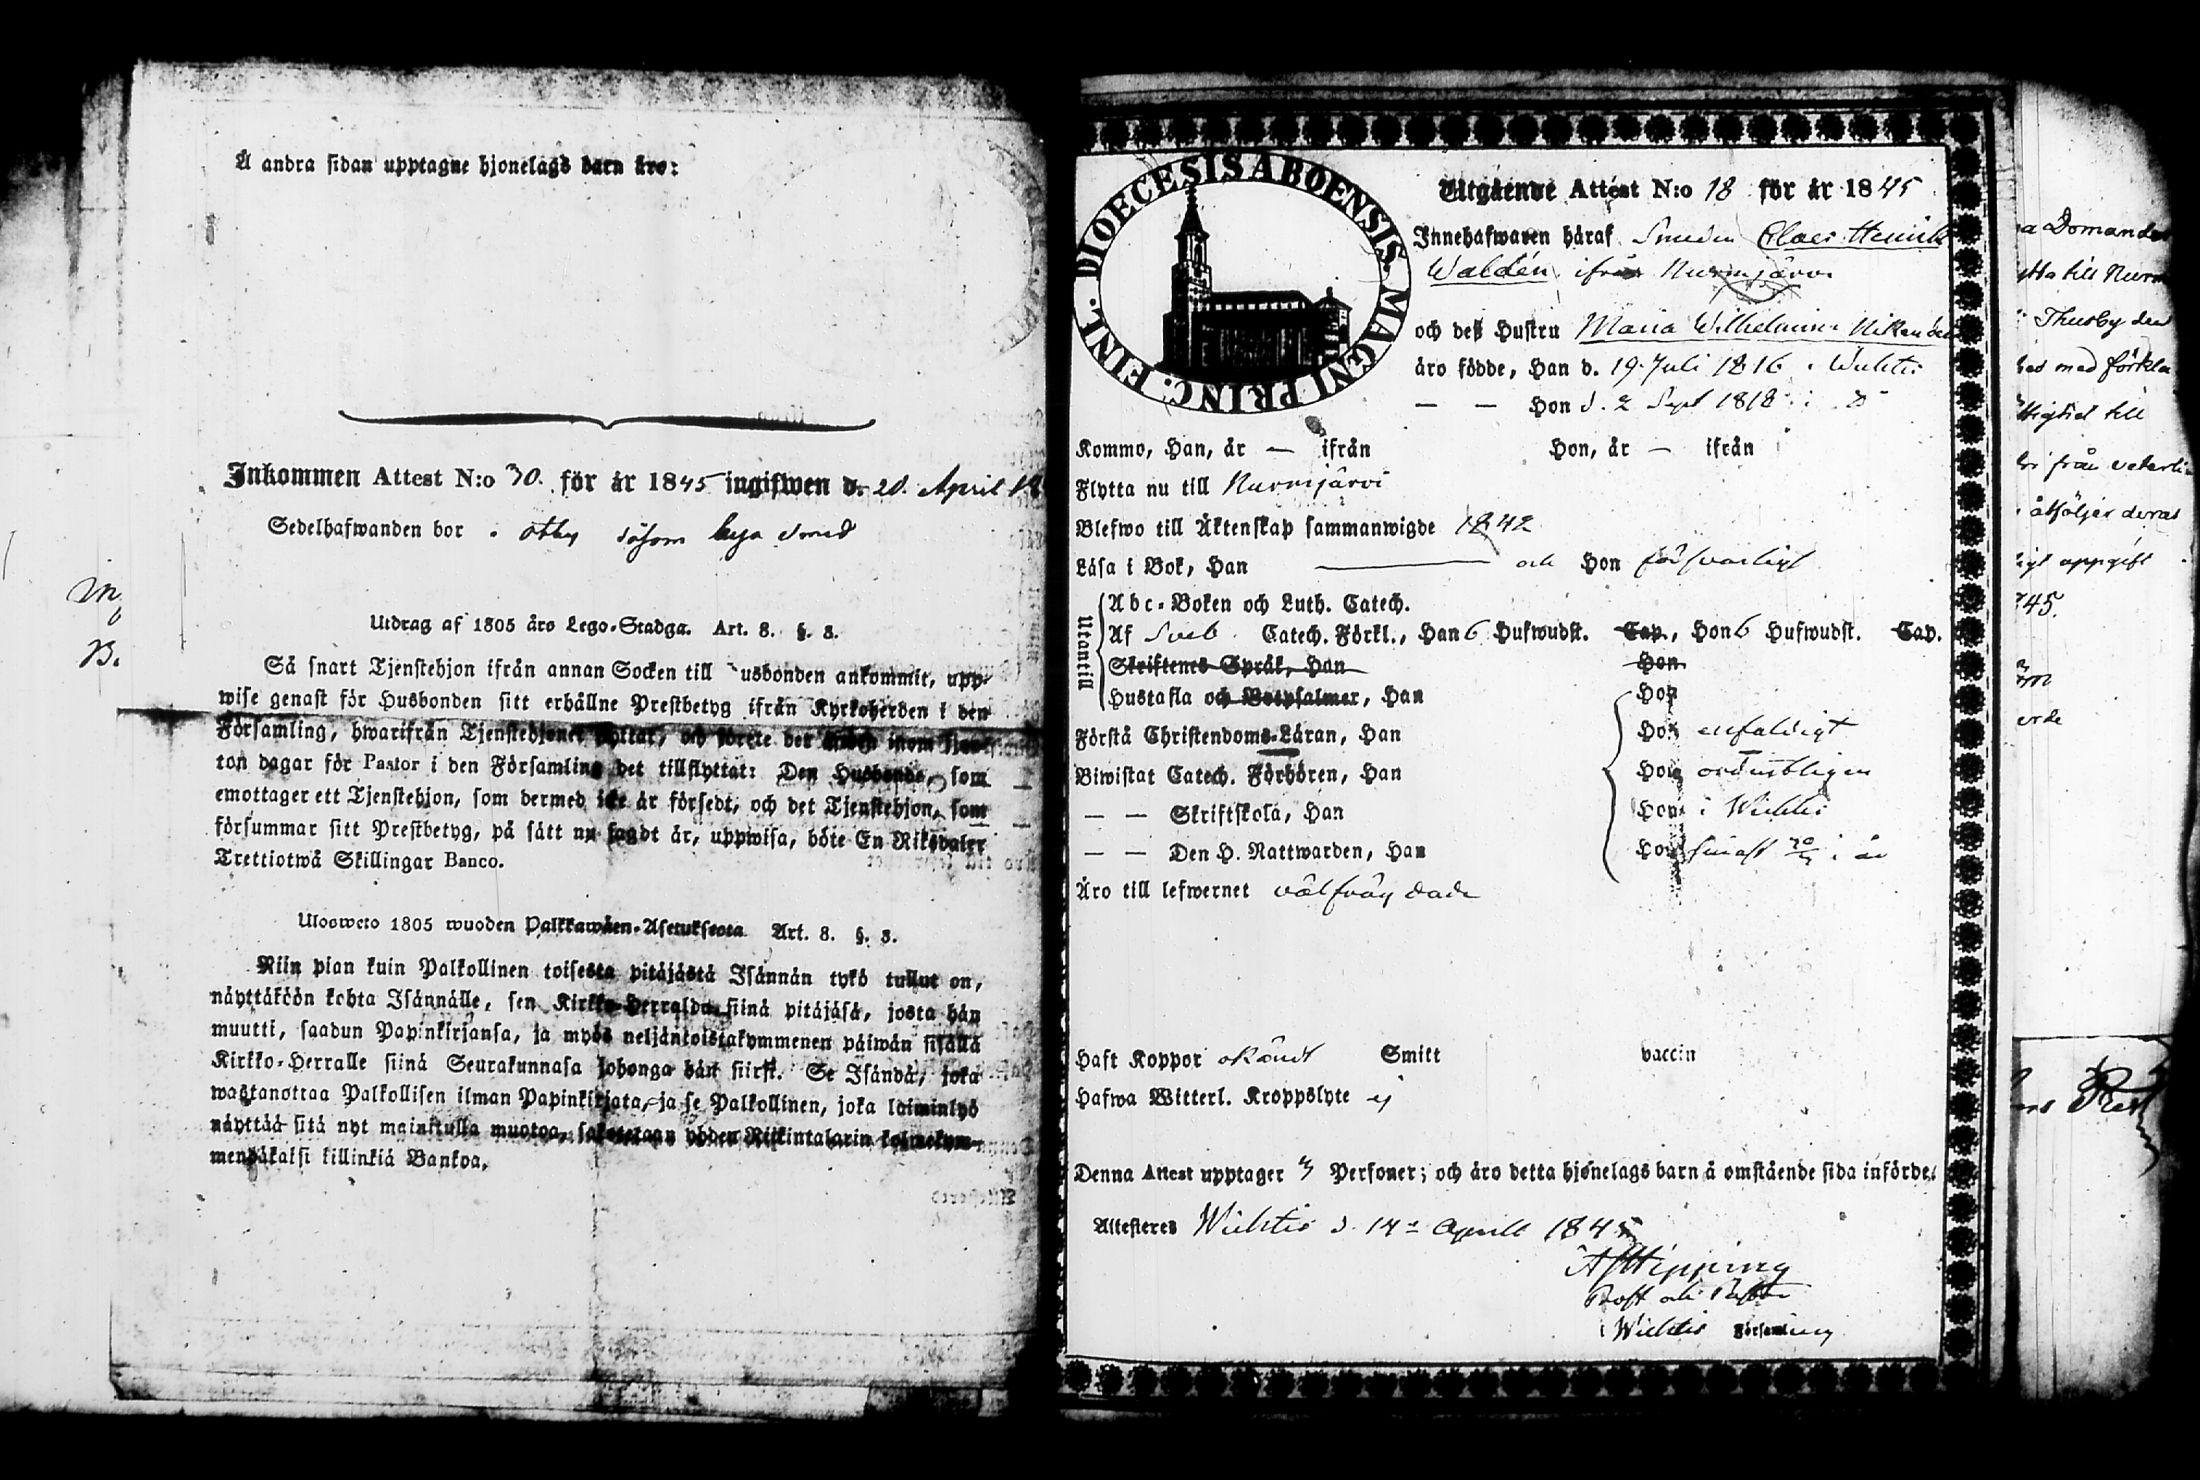 Å andra sidan upptagne hjonelags barn äro:
Inkommen Attest N:o 30. för år 1845 ingifwen d. 20. April
Sedelhafwanden bor i Otby såsom bya smed
Utdrag af 1805 års Lego-Stadga. Art. 8. §. 3.
Så snart Tjenstehjon ifrån annan Socken till usbonden ankommit, upp-
wise genast för Husbonden sitt erhållne Prestbetyg ifrån Kyrkoherden i den
Församling, hwarifrån Tjenstehjonet flyttat, och förete det sedan inom fjor-
ton dagar för Pastor i den Församling det tillflyttat: Den Husbonde, som
emottager ett Tjenstehjon, som dermed icke är försedt, och det Tjenstehjon, som
försummar sitt Prestbetyg, på sätt nu sagdt är, uppwisa, böte En Riksdaler
Trettiotwå Skillingar Banco.
Ulosweto 1805 wuoden Palkkawäen-Asetuksesta Art. 8. §. 3.
Niin pian kuin Palkollinen toisesta pitäjästä Isännän tykö tullut on,
näyttäköön kohta Isännälle, sen Kirkko-Herralda siinä pitäjäsä, josta hän
muutti, saadun Papinkirjansa, ja myös neljäntoistakymmenen päiwän sisällä
Kirkko-Herralle siinä Seurakunnasa johonga hän siirsi. Se Isändä, joka
wastanottaa Palkollisen ilman Papinkirjata, ja se Palkollinen, joka laiminlyö
näyttää sitä nyt mainitulla muotoa, sakotetaan yhden Riikintalarin kolmekym-
mendäkaksi killinkiä Bankoa.
DIOECESIS ABOENSIS. MAGNI PRINC. FINL.
Utgående Attest N:o 18 för år 1845
Innehafwaren häraf Smeden Claes Henrik
Waldén ifrån Nurmijärvi
och dess Hustru Maria Wilhelmina Nikander
äro födde, Han d. 19 Juli 1816 i Wichtis
— — Hon d. 2 Sept 1818 i D°
Kommo, Han, år — ifrån Hon, år — ifrån
Flytta nu till Nurmijärvi
Blefwo till Äktenskap sammanwigde 1842
Läsa i Bok, Han — och Hon försvarligt
Utantill
Abc-Boken och Luth. Catech.
Af Sveb. Catech. Förkl., Han 6 Hufwudst. Cap., Hon 6 Hufwudst. Cap.
Skriftenes Språk, Han Hon
Hustafla och Botpsalmer, Han Hon
Förstå Christendoms-Läran, Han Hon enfaldigt
Biwistat Catech. Förhören, Han Hon ordentligen
— — Skriftskola, Han Hon i Wichtis
— — Den H. Nattwarden, Han Hon sinast i år
Äro till lefwernet välfrägdade
Haft Koppor okändt Smitt vaccin
Hafwa Witterl. Kroppslyte ej
Denna Attest upptager 3 Personer; och äro detta hjonelags barn å omstående sida införde.
Attesteres Wichtis d. 14de Aprill 1845
A J Hipping
Prost och Pastor
i Wichtis Församling
Domander
till Nurm
Thusby den
med förkla
till
från
åtföljer deras
uppgift
45.